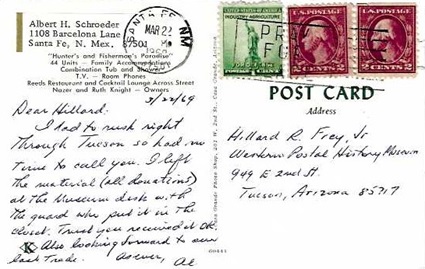 Albert H. Schroeder
1108 Barcelona Lane
Santa Fe, N. Mex., 87501
"Hunter's and Fisherman's Paradise"
44 Units - Family Accommodations
Combination Tub and Showers
T.V. - Room Phones
Reeds Restaurant and Cocktail Lounge Across Street
Nazer and Ruth Knight - Owners
3/22/69
Dear Hillard:
I had to rush right
through Tucson so had no
time to call you. I left
the material (all donations)
at the Museum desk with
the guard who put it in the
closet. Trust you received it OK.
Also looking forward to our
last trade. As ever, Al
K
SANTA FE, NM
MAR 22
PM
UNITED STATES OF AMERICA
INDUSTRY AGRICULTURE
FOR DEFENSE
2 CENTS 2
2 CENTS 2
PR
FO
POST CARD
Address
Hillard R. Frey, Jr
Western Postal History Museum
949 E 2nd St.
Tucson, Arizona 85717